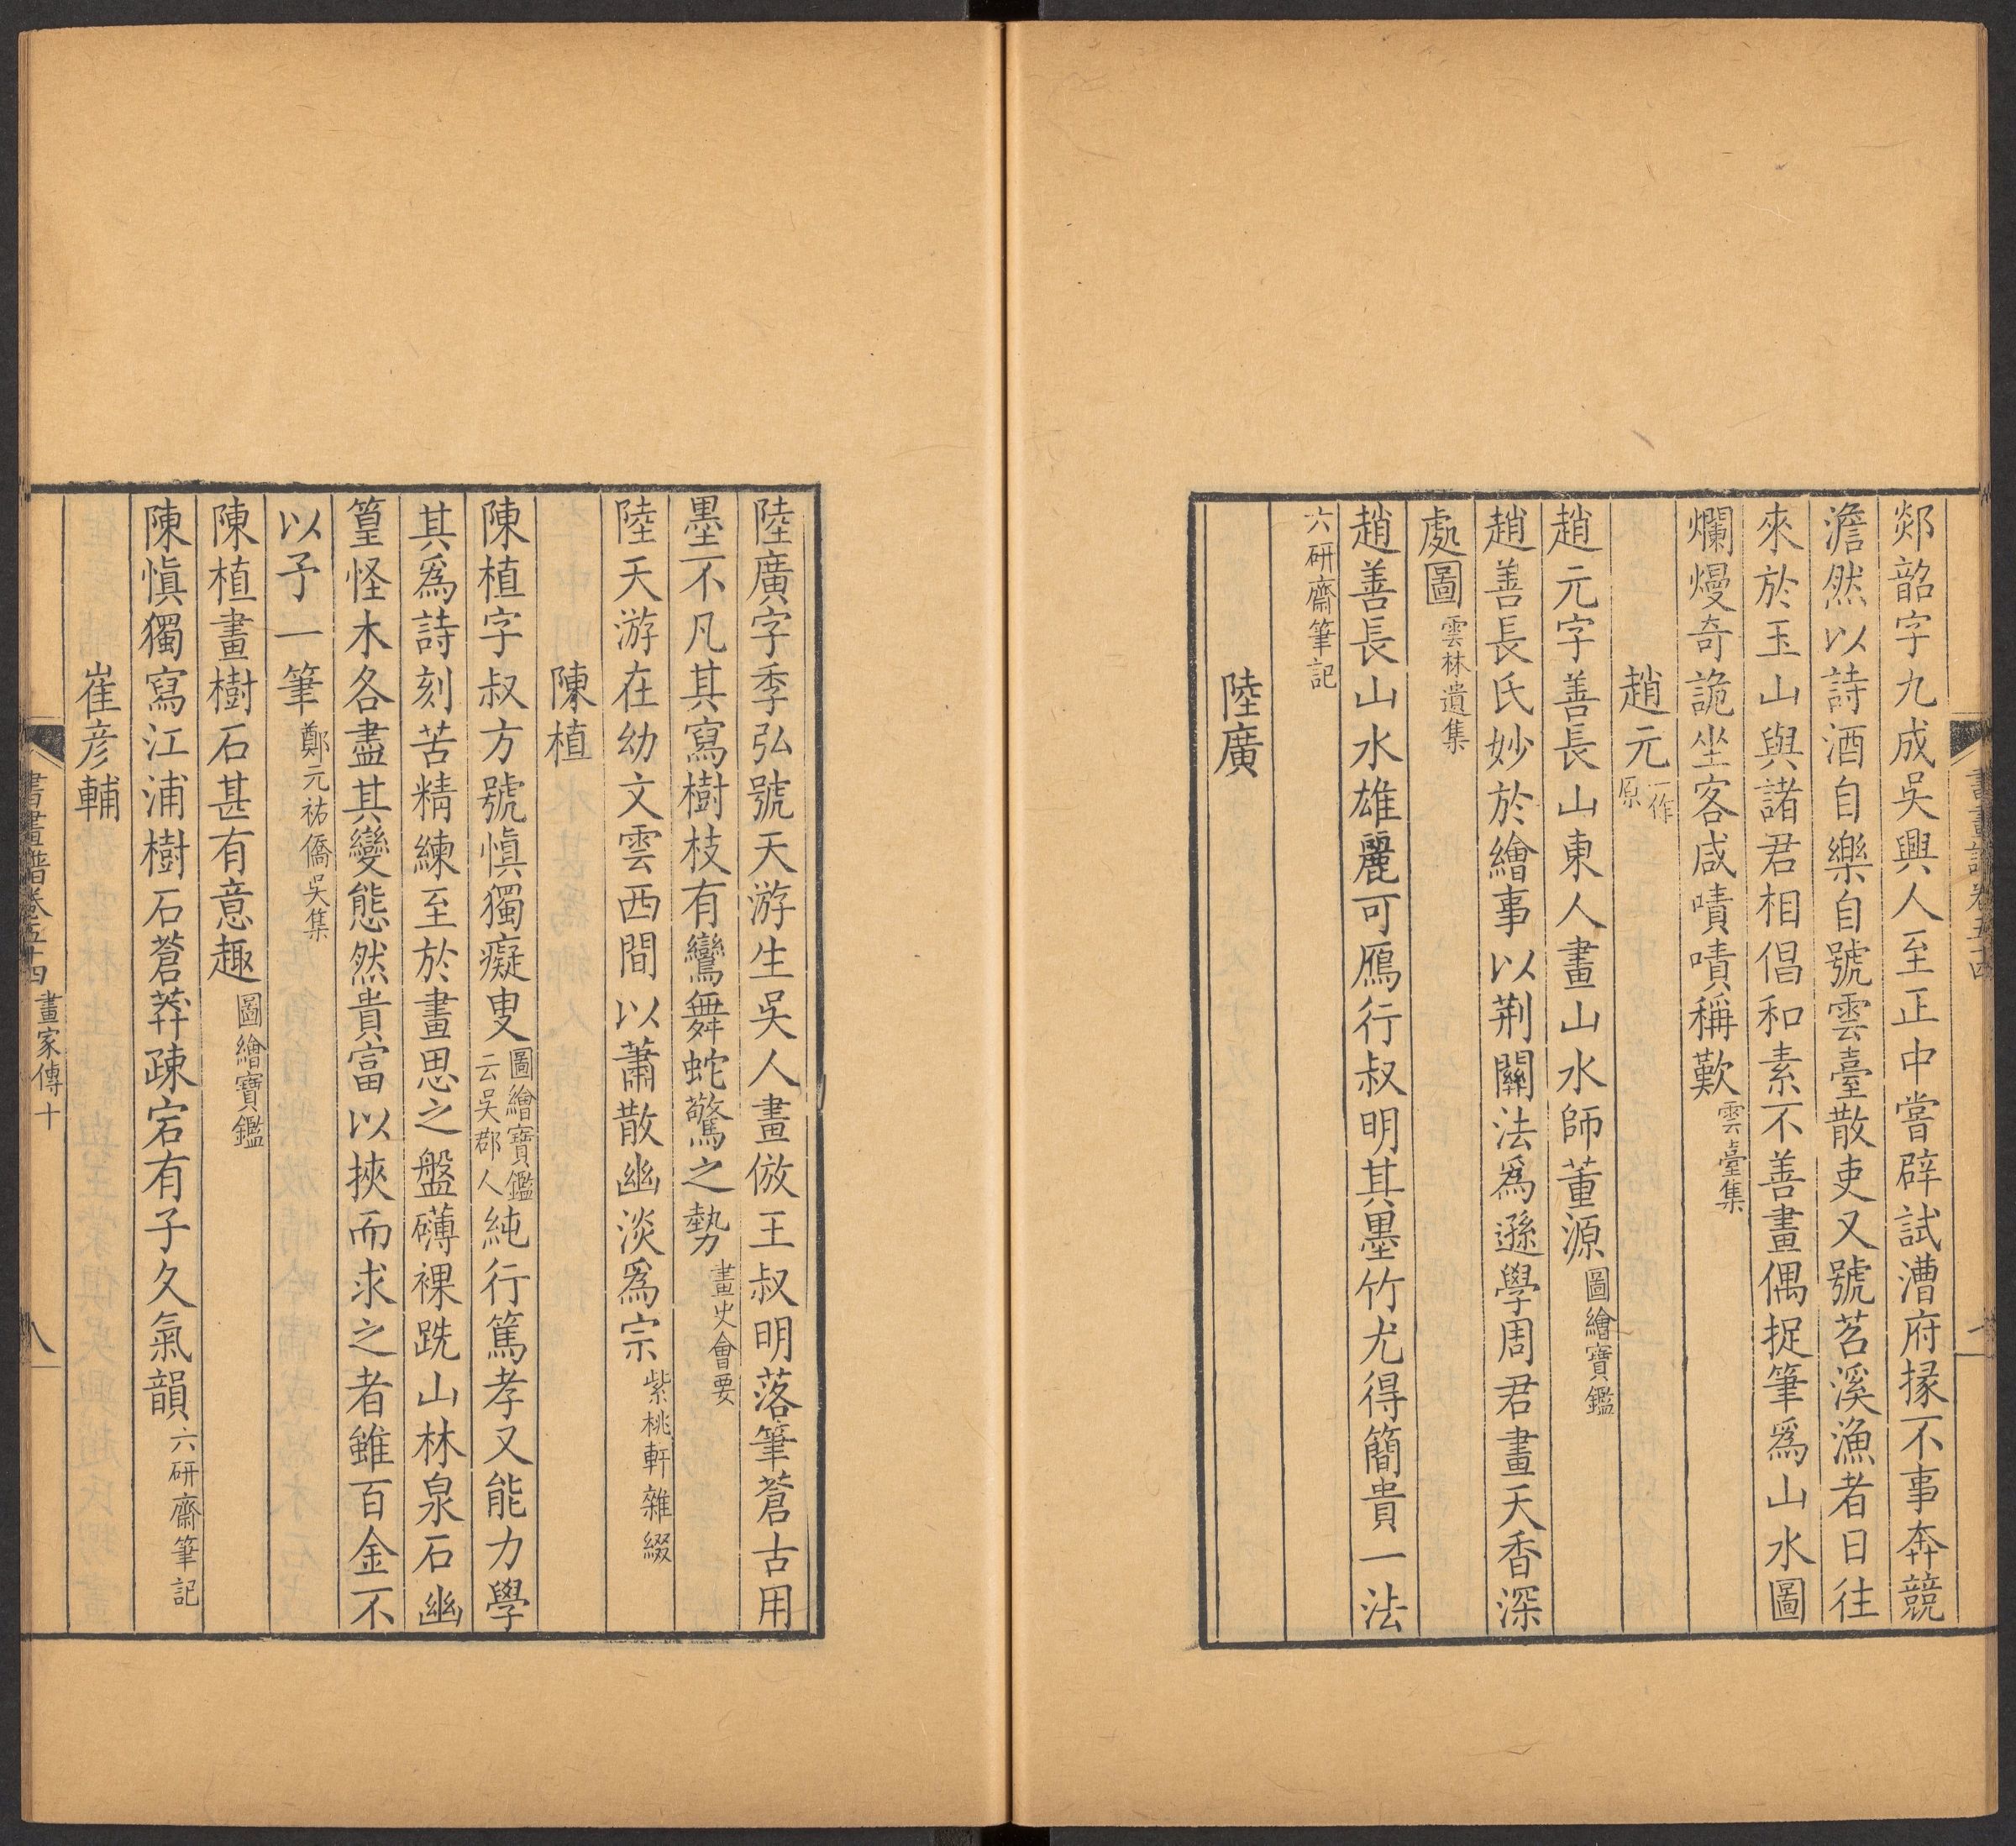 郯韶字九成吳興人至正中嘗辟試漕府掾不事奔競
澹然以詩酒自樂自號雲臺散吏又號苕溪漁者日往
來於玉山與諸君相倡和素不善畫偶捉筆爲山水圖
爛熳奇詭坐客咸嘖嘖稱歎雲臺集
趙元一作原
趙元字善長山東人畫山水師董源圖繪寶鑑
趙善長氏妙於繪事以荆關法爲遜學周君畫天香深
處圖雲林遺集
趙善長山水雄麗可鴈行叔明其墨竹尤得簡貴一法
六研齋筆記
陸廣
陸廣字季弘號天游生吳人畫倣王叔明落筆蒼古用
墨不凡其寫樹枝有鸞舞蛇驚之勢畫史會要
陸天游在幼文雲西間以蕭散幽淡爲宗紫桃軒雜綴
陳植
陳植字叔方號慎獨癡叟圖繪寶鑑云吳郡人純行篤孝又能力學
其爲詩刻苦精練至於畫思之盤礴裸跣山林泉石幽
篁怪木各盡其變態然貴富以挾而求之者雖百金不
以予一筆鄭元祐僑吳集
陳植畫樹石甚有意趣圖繪寶鑑
陳慎獨寫江浦樹石蒼莽疎宕有子久氣韻六研齋筆記
崔彦輔
書畫譜卷五十四 畫家傳十 八